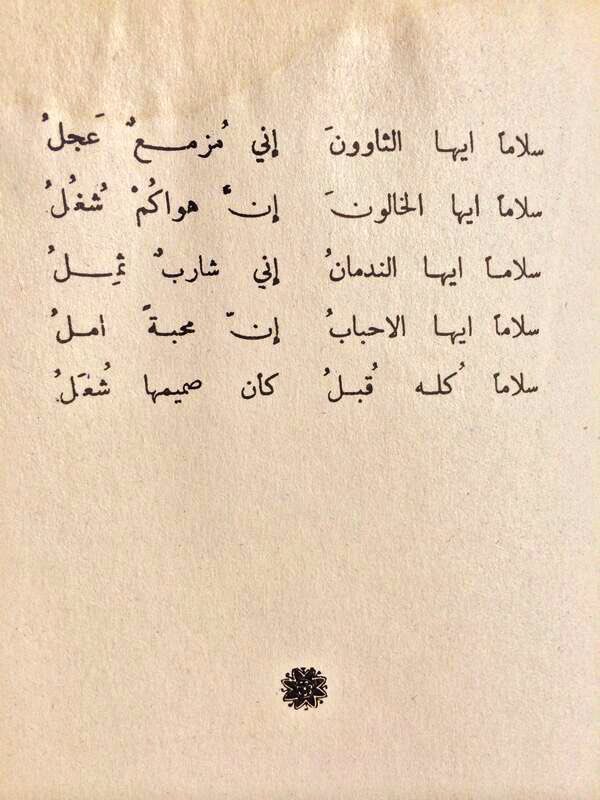 سلاماً ايها الثاوونَ إني مُزمعٌ عَجلُ
سلاماً ايها الخالونَ إنً هواكُمْ شُغُلُ
سلاماً ايها الندمانُ إني شاربٌ ثَمِلُ
سلاماً ايها الاحبابُ إنّ محبةً املُ
سلاماً كُله قُبلُ كأن صميمها شُعَلُ